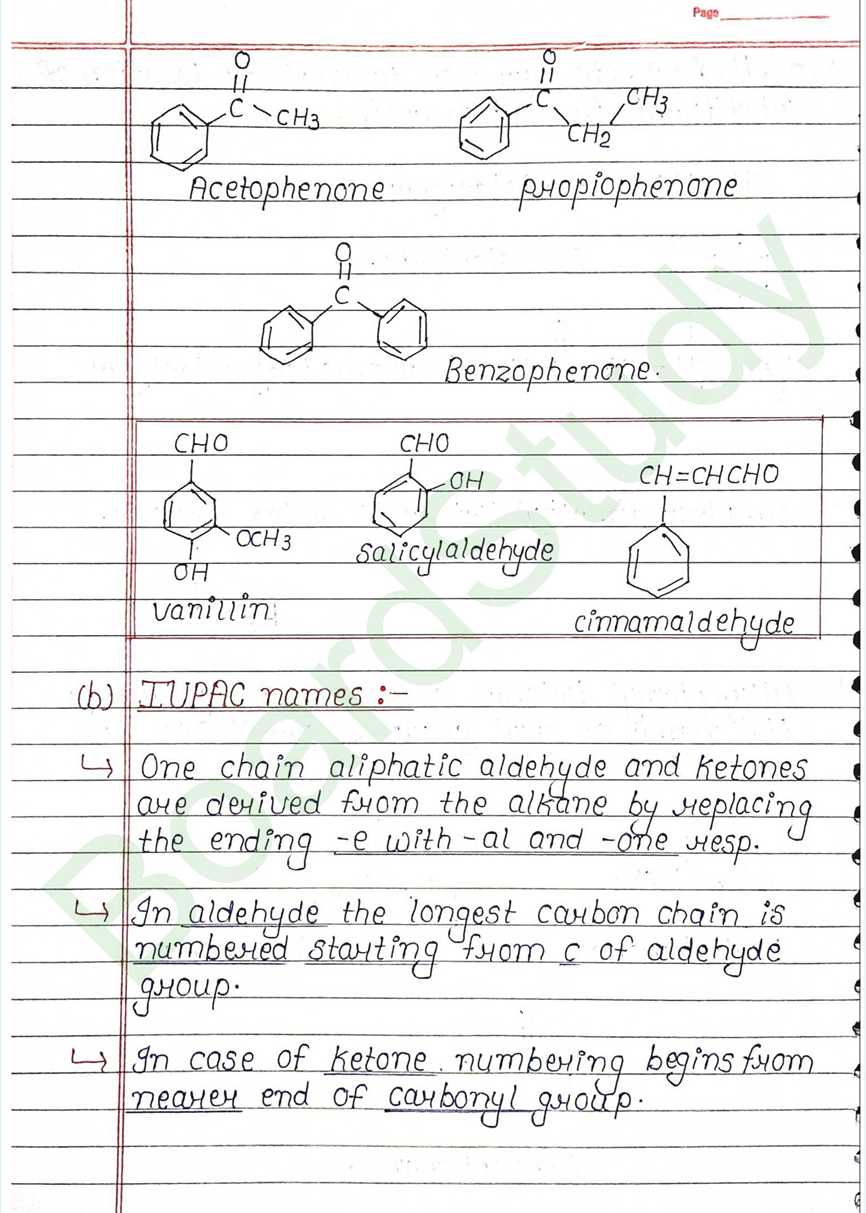 Page
O
||
C
CH3
Acetophenone
O
||
C
CH2
CH3
propiophenone
O
||
C
Benzophenone.
CHO
OCH3
OH
vanillin
CHO
OH
salicylaldehyde
CH=CHCHO
cinnamaldehyde
(b) IUPAC names :-
↳ One chain aliphatic aldehyde and ketones
are derived from the alkane by replacing
the ending -e with -al and -one resp.
↳ In aldehyde the longest carbon chain is
numbered starting from c of aldehyde
group.
↳ In case of ketone numbering begins from
nearer end of carbonyl group.
BoardStudy